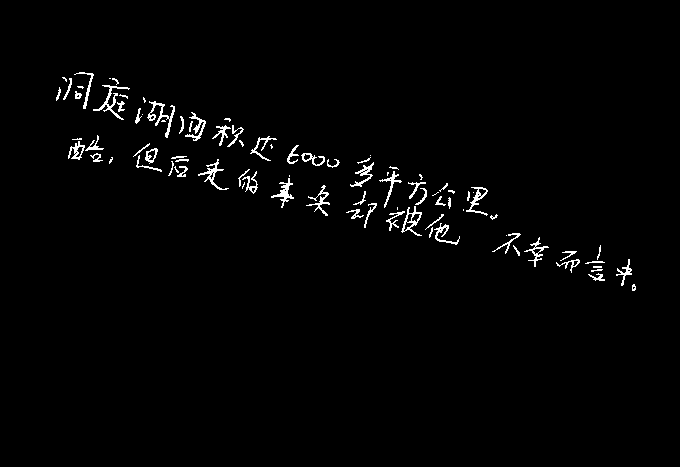 洞庭湖面积达6000多平方公里。
酷，但后来的事实却被他 不幸而言中。